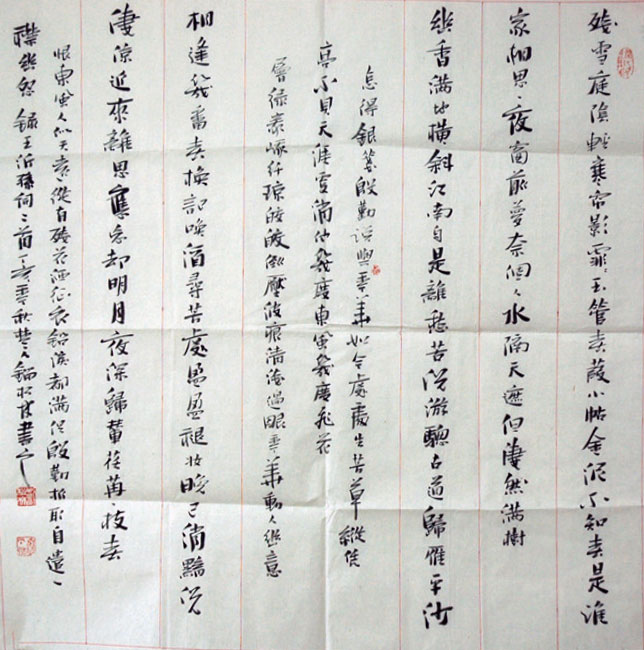 殘雪庭陰輕寒帘影霏霏玉管春葭小帖金泥不知春是誰
家相思一夜窗前夢奈個人水隔天遮但淒然滿樹
幽香滿地橫斜江南自是離愁苦況游驄古道歸雁平沙
怎得銀箋殷勤說與年華如今處處生芳草縱憑
高不見天涯更消他幾度東風幾度飛花
層綠峨峨纖瓊皎皎倒壓波痕清淺過眼年華動人幽意
相逢幾番春換記喚酒尋芳處盈盈褪妝晚已消黯況
淒涼近來離思應忘却明月夜深歸輦荏苒一枝春
恨東風人似天遠縱有殘花洒征衣鉛淚都滿但殷勤折取自遣一
襟幽怨 錄王沂孫詞二首 書之